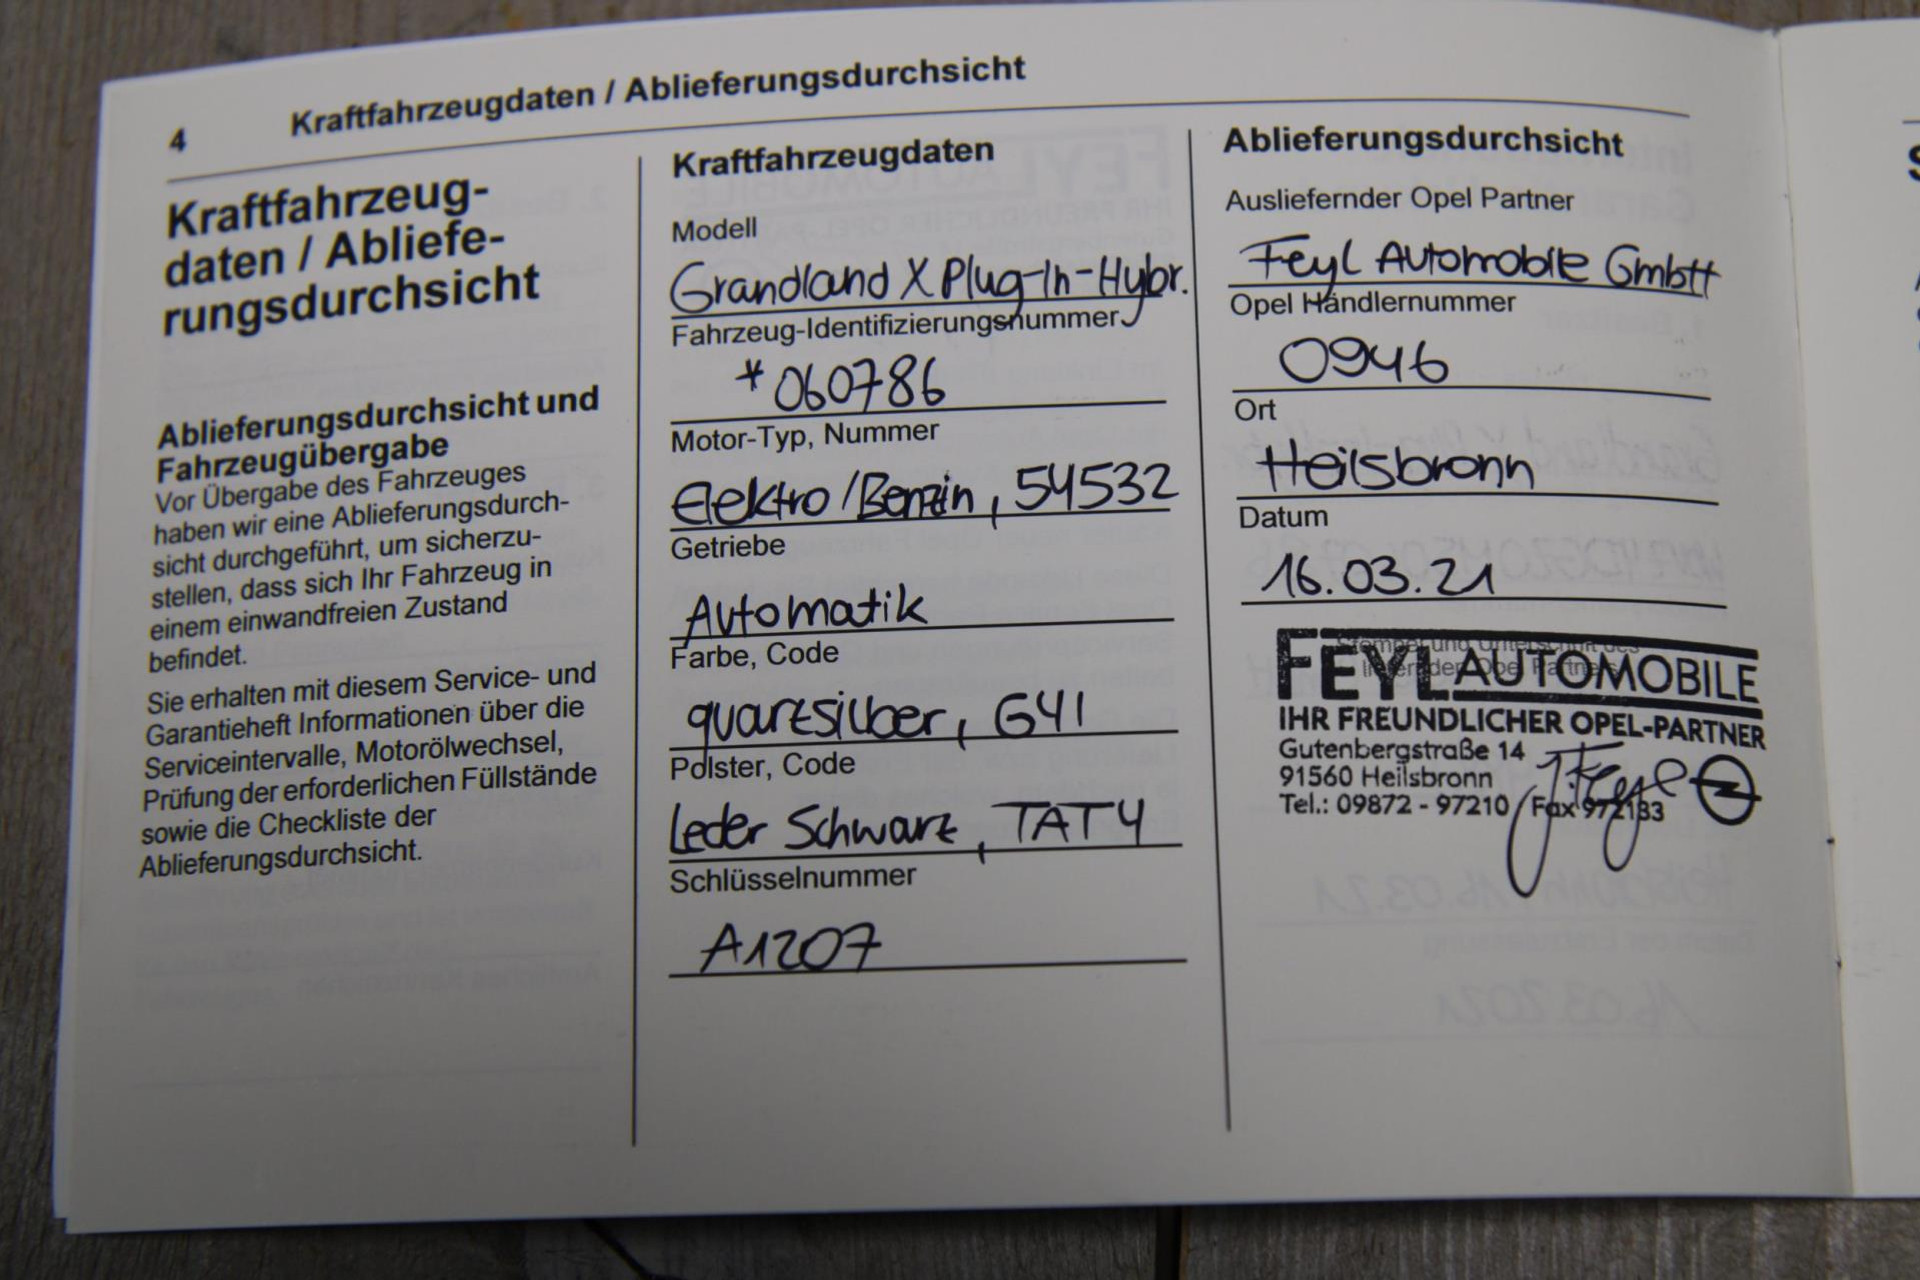 4
Kraftfahrzeugdaten / Ablieferungsdurchsicht
Kraftfahrzeug-
daten / Abliefe-
rungsdurchsicht
Ablieferungsdurchsicht und
Fahrzeugübergabe
Vor Übergabe des Fahrzeuges
haben wir eine Ablieferungsdurch-
sicht durchgeführt, um sicherzu-
stellen, dass sich Ihr Fahrzeug in
einem einwandfreien Zustand
befindet.
Sie erhalten mit diesem Service- und
Garantieheft Informationen über die
Serviceintervalle, Motorölwechsel,
Prüfung der erforderlichen Füllstände
sowie die Checkliste der
Ablieferungsdurchsicht.
Kraftfahrzeugdaten
Modell
Grandland X Plug-In-Hybr.
Fahrzeug-Identifizierungsnummer
*060786
Motor-Typ, Nummer
Elektro/Benzin, 54532
Getriebe
Automatik
Farbe, Code
quarzsilber, G4I
Polster, Code
Leder Schwarz, TAT4
Schlüsselnummer
A1207
Ablieferungsdurchsicht
Ausliefernder Opel Partner
Feyl Automobile GmbH
Opel Händlernummer
0946
Ort
Heilsbronn
Datum
16.03.21
Stempel und Unterschrift des
liefernden Opel Partners
FEYL AUTOMOBILE
IHR FREUNDLICHER OPEL-PARTNER
Gutenbergstraße 14
91560 Heilsbronn
Tel.: 09872 - 97210 / Fax 972133